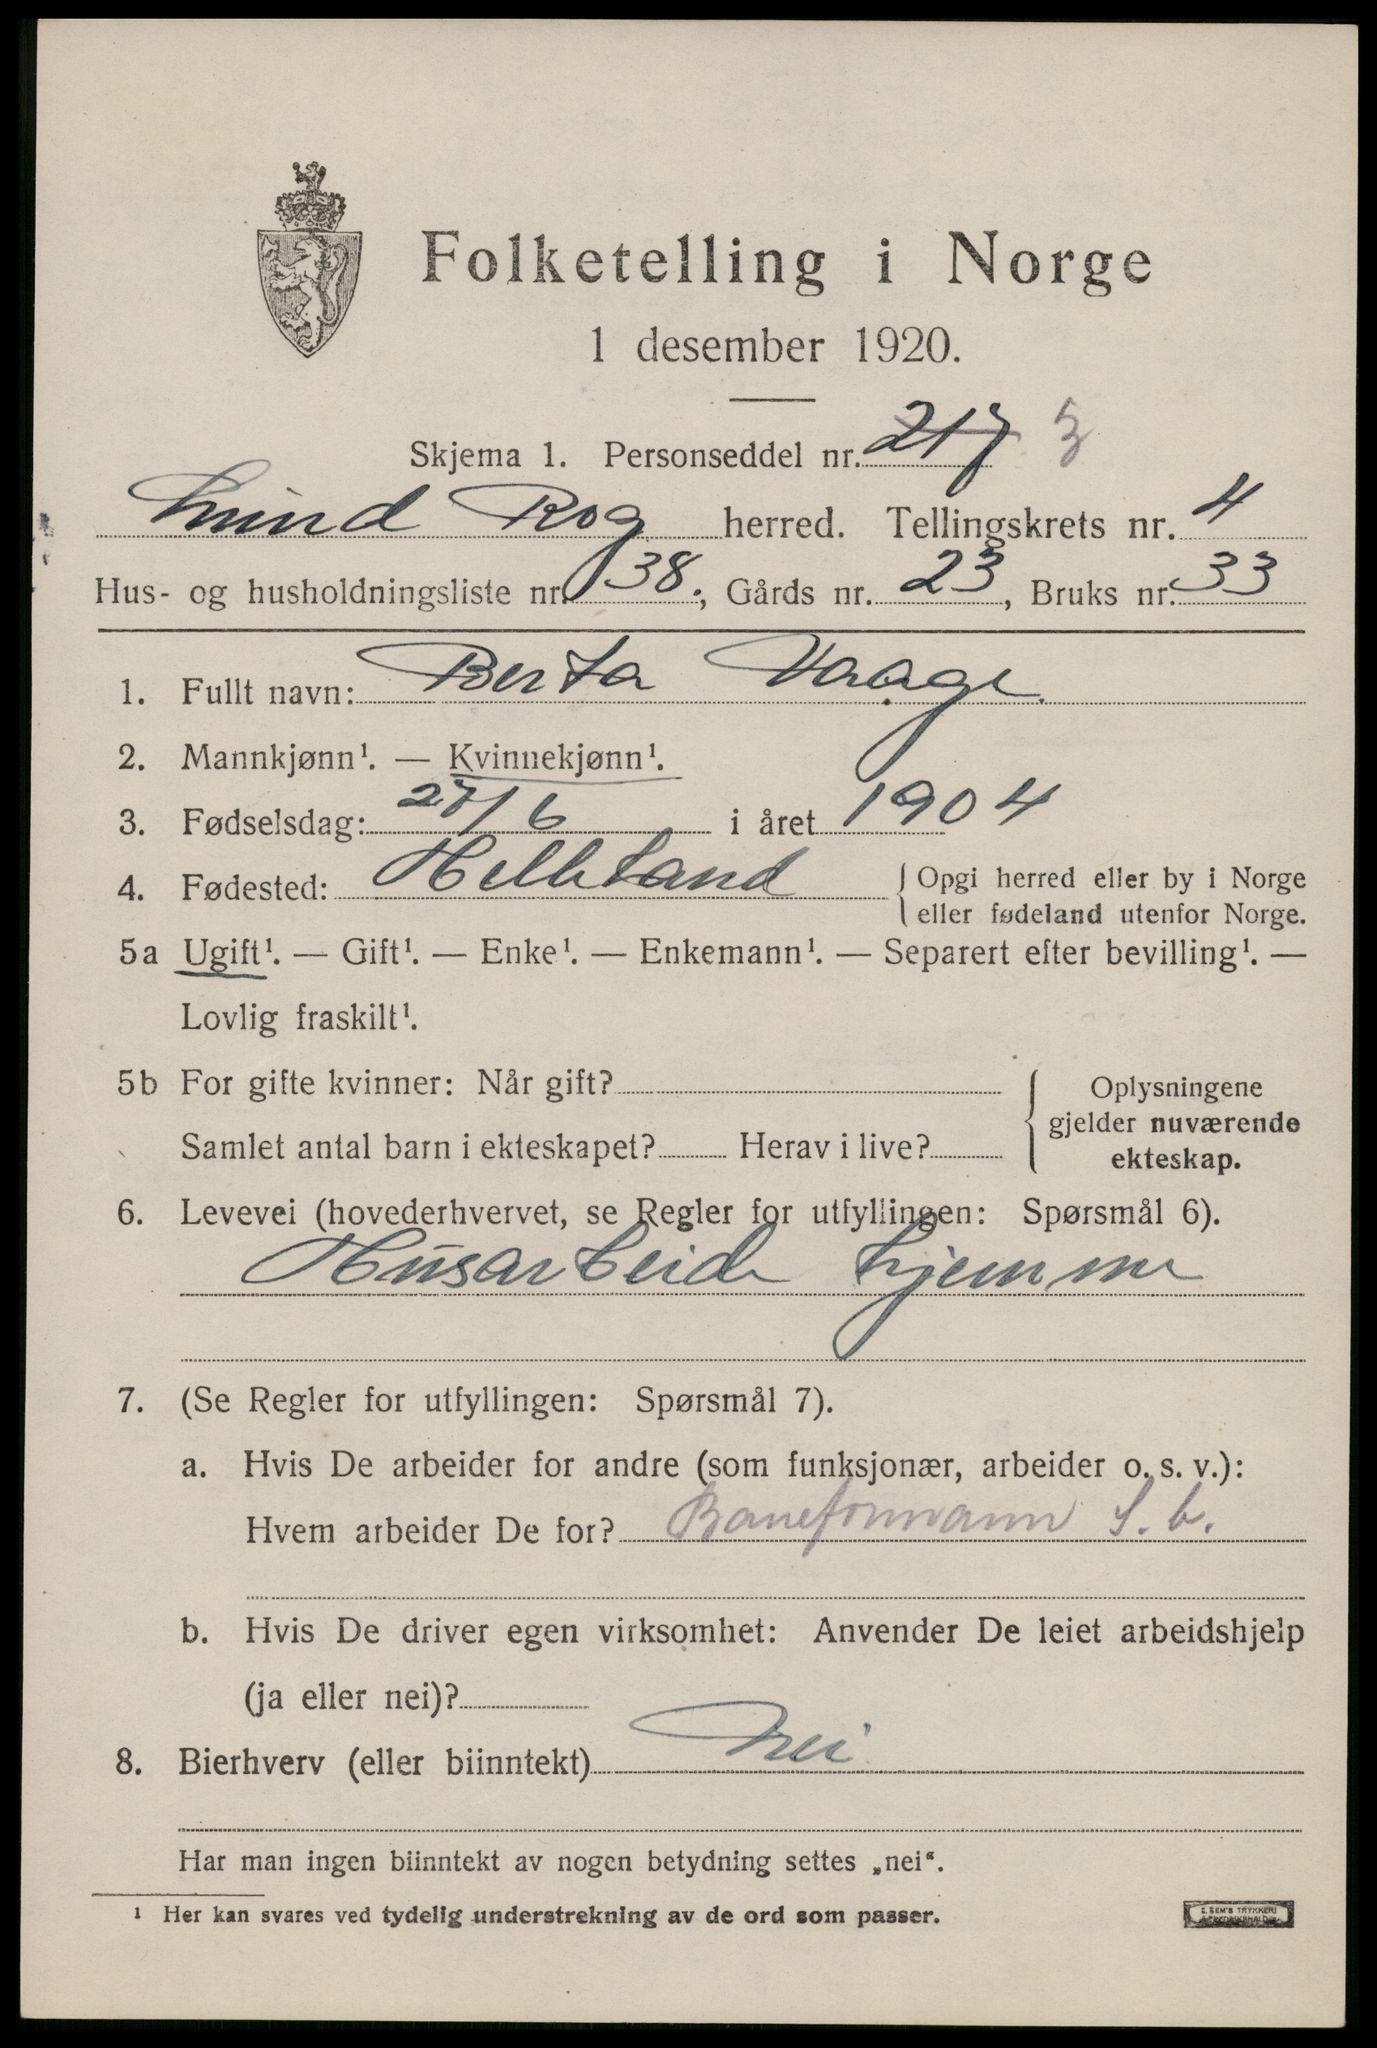 Folketelling i Norge
1 desember 1920.
Skjema 1. Personseddel nr. 217 3
Lund Rog herred. Tellingskrets nr. 4
Hus- og husholdningsliste nr. 38., Gårds nr. 23, Bruks nr. 33
1. Fullt navn: Berta Vaage.
2. Mannkjønn¹. — Kvinnekjønn¹.
3. Fødselsdag: 27/6 i året 1904
4. Fødested: Helleland { Opgi herred eller by i Norge
eller fødeland utenfor Norge.
5a Ugift¹. — Gift¹. — Enke¹. — Enkemann¹. — Separert efter bevilling¹. —
Lovlig fraskilt¹.
5b For gifte kvinner: Når gift? { Oplysningene
gjelder nuværende
Samlet antal barn i ekteskapet? Herav i live?
ekteskap.
6. Levevei (hovederhvervet, se Regler for utfyllingen: Spørsmål 6).
Husarbeide hjemme
7. (Se Regler for utfyllingen: Spørsmål 7).
a. Hvis De arbeider for andre (som funksjonær, arbeider o. s. v.):
Hvem arbeider De for? Baneformann S. b.
b. Hvis De driver egen virksomhet: Anvender De leiet arbeidshjelp
(ja eller nei)?
8. Bierhverv (eller biinntekt) Nei
Har man ingen biinntekt av nogen betydning settes „nei“.
¹ Her kan svares ved tydelig understrekning av de ord som passer.